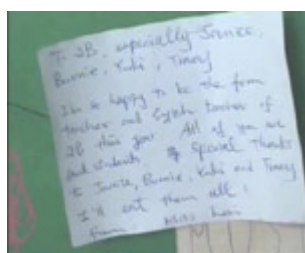 To 2B, especially Janice,
Bonnie, Kuki, Tracy
I'm so happy to be the form
teacher and English teacher of
2B this year. All of you are
good students. Special thanks
to Janice, Bonnie, Kuki and Tracy
I'll eat them all!
From Miss